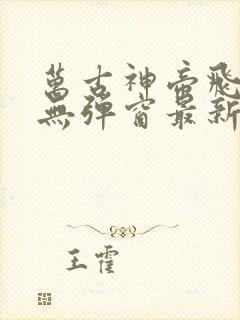 萬古神帝飛
無彈窗最新
王霍